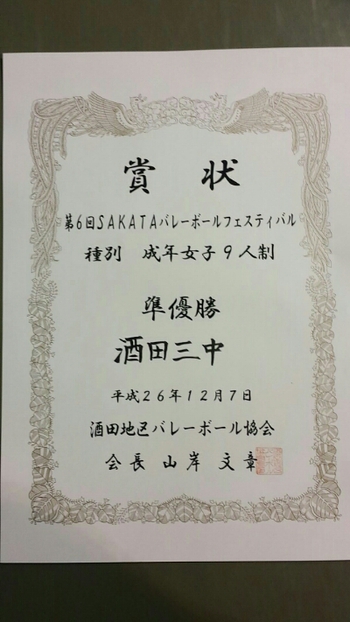 賞状
第6回SAKATAバレーボールフェスティバル
種別 成年女子9人制
準優勝
酒田三中
平成26年12月7日
酒田地区バレーボール協会
会長 山岸 文章